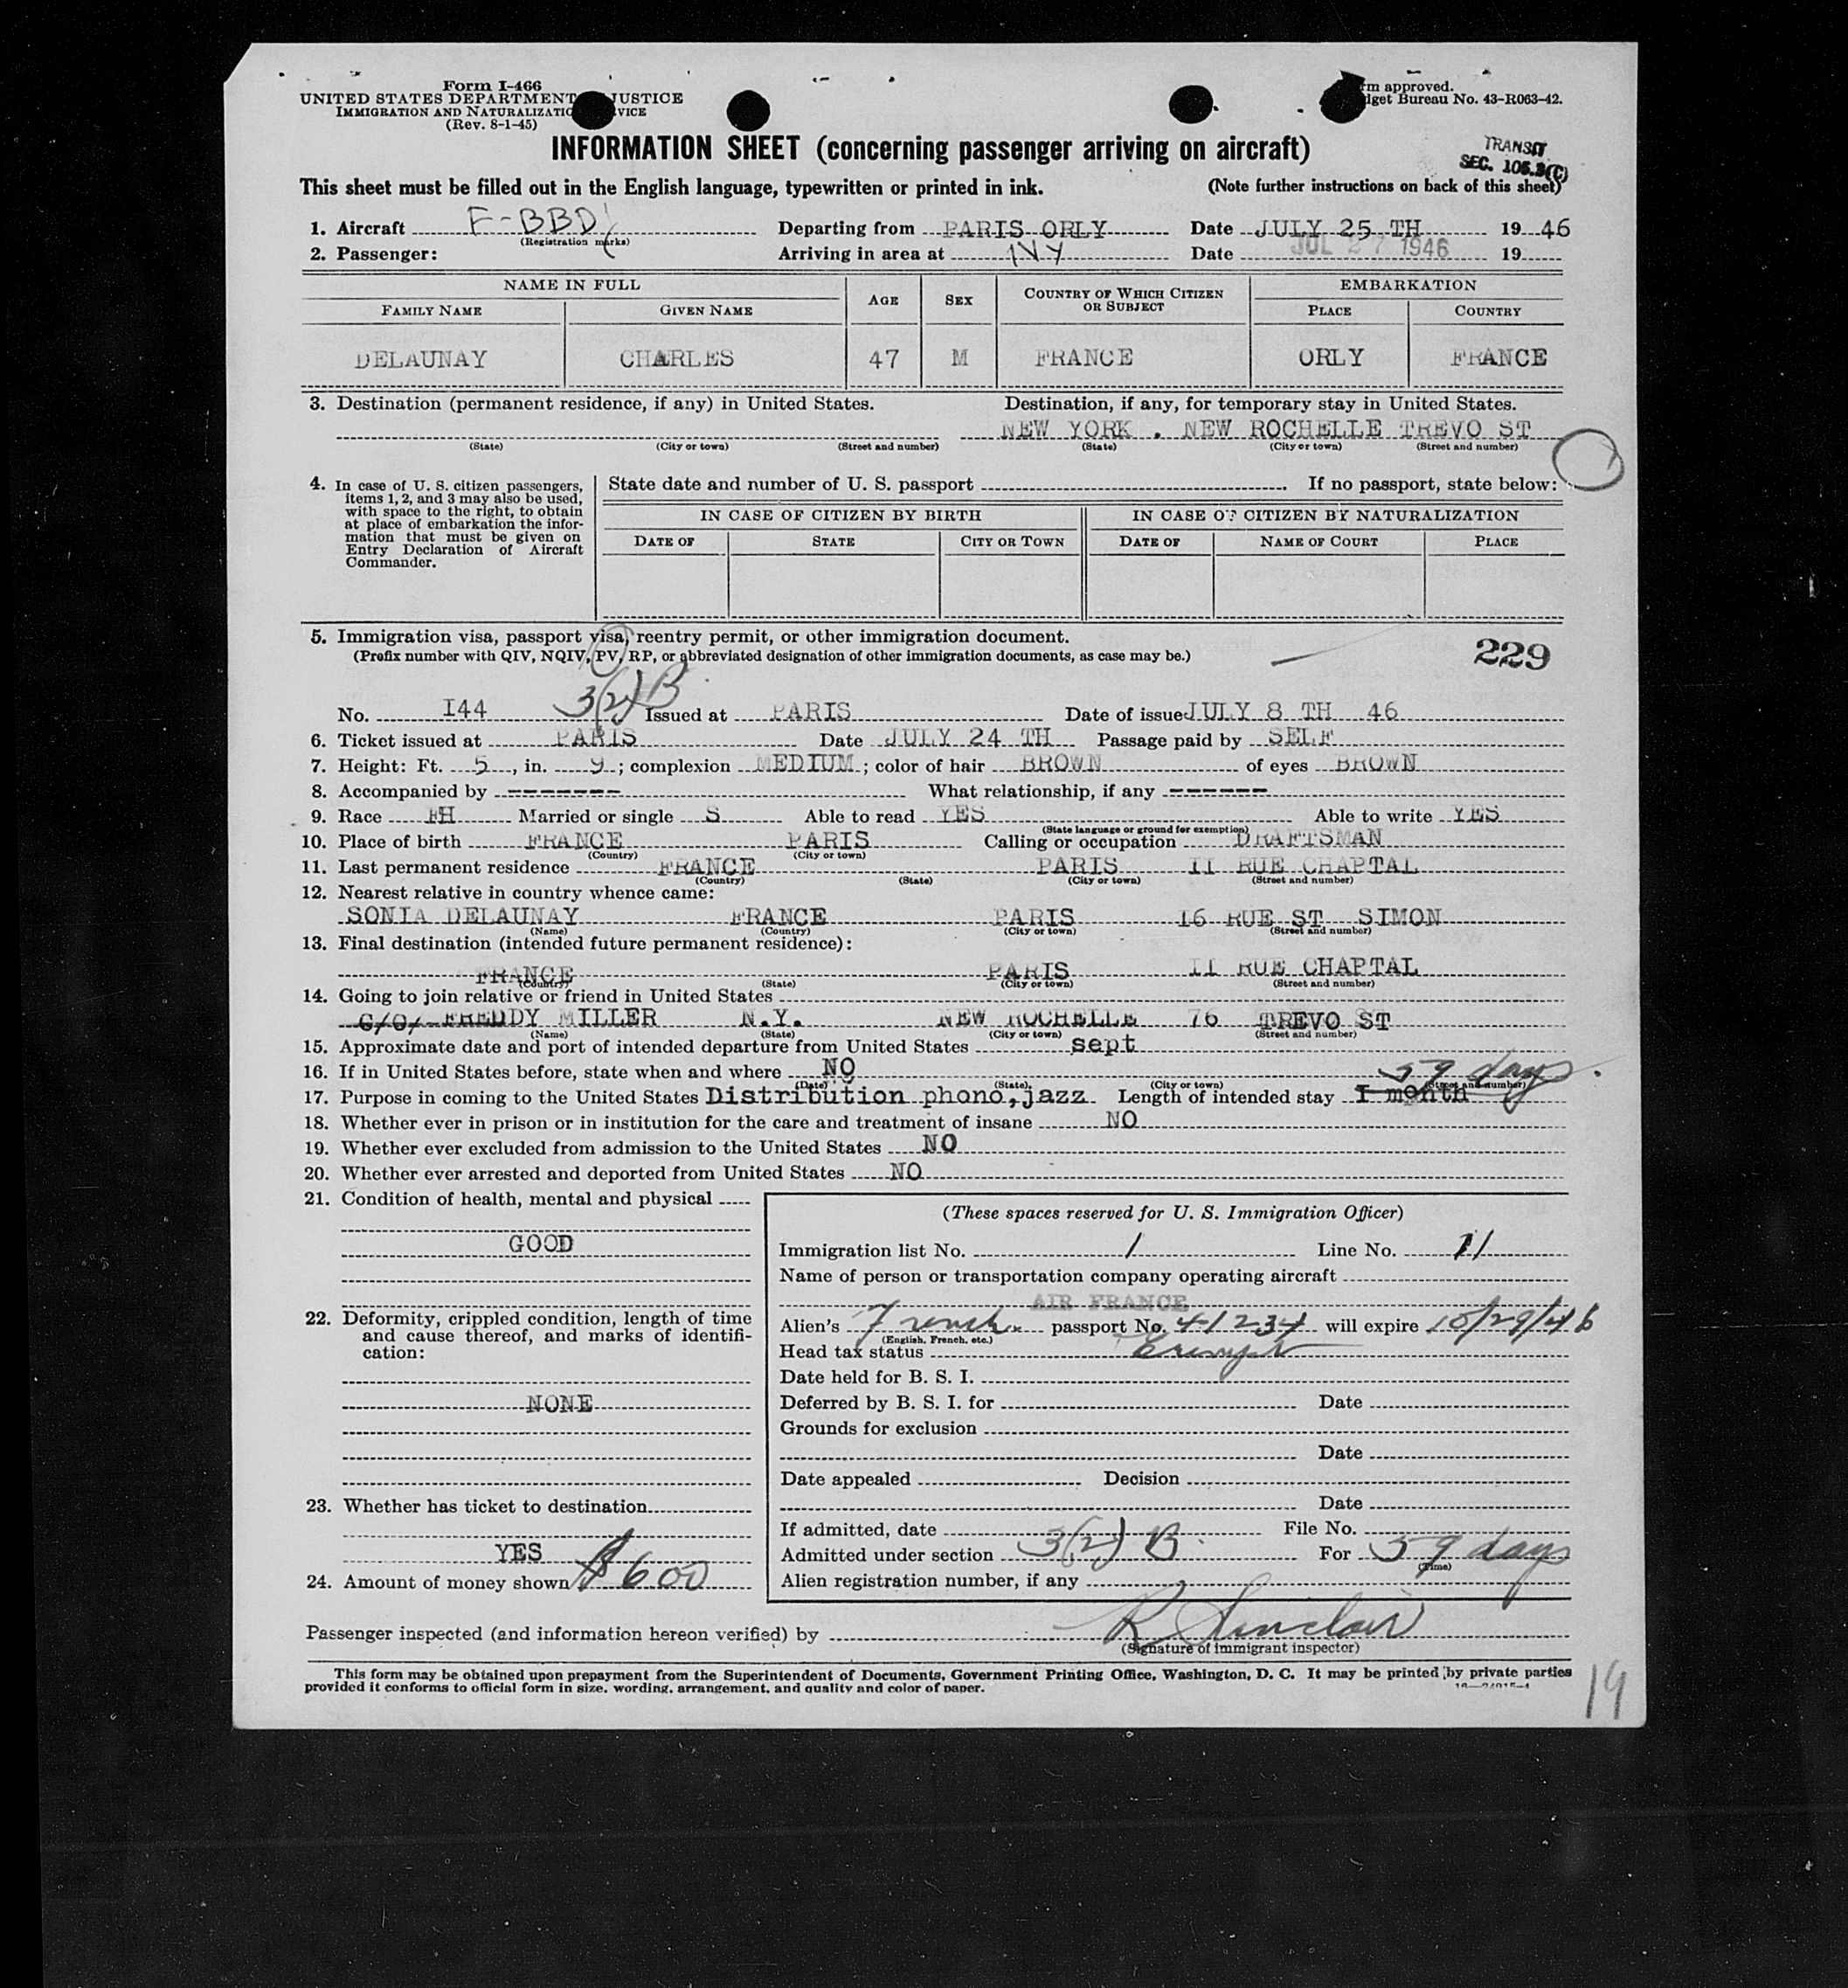 Form I-466
UNITED STATES DEPARTMENT JUSTICE
IMMIGRATION AND NATURALIZATIO VICE
(Rev. 8-1-45)
rm approved.
dget Bureau No. 43-R063-42.
INFORMATION SHEET (concerning passenger arriving on aircraft)
TRANSIT
SEC. 105.3(C)
This sheet must be filled out in the English language, typewritten or printed in ink. (Note further instructions on back of this sheet)
1. Aircraft F-BBD Departing from PARIS ORLY Date JULY 25 TH 19 46
(Registration marks)
2. Passenger: Arriving in area at NY Date JUL 27 1946 19
NAME IN FULL AGE SEX COUNTRY OF WHICH CITIZEN OR SUBJECT EMBARKATION
FAMILY NAME GIVEN NAME PLACE COUNTRY
DELAUNAY CHARLES 47 M FRANCE ORLY FRANCE
3. Destination (permanent residence, if any) in United States. Destination, if any, for temporary stay in United States.
NEW YORK . NEW ROCHELLE TREVO ST
(State) (City or town) (Street and number) (State) (City or town) (Street and number)
4. In case of U. S. citizen passengers, items 1, 2, and 3 may also be used, with space to the right, to obtain at place of embarkation the information that must be given on Entry Declaration of Aircraft Commander.
State date and number of U. S. passport . If no passport, state below:
IN CASE OF CITIZEN BY BIRTH IN CASE OF CITIZEN BY NATURALIZATION
DATE OF STATE CITY OR TOWN DATE OF NAME OF COURT PLACE
5. Immigration visa, passport visa, reentry permit, or other immigration document.
(Prefix number with QIV, NQIV, PV, RP, or abbreviated designation of other immigration documents, as case may be.)
229
No. I44 3(2) B Issued at PARIS Date of issue JULY 8 TH 46
6. Ticket issued at PARIS Date JULY 24 TH Passage paid by SELF
7. Height: Ft. 5, in. 9; complexion MEDIUM; color of hair BROWN of eyes BROWN
8. Accompanied by ------- What relationship, if any -------
9. Race FH Married or single S Able to read YES Able to write YES
(State language or ground for exemption)
10. Place of birth FRANCE PARIS Calling or occupation DRAFTSMAN
(Country) (City or town)
11. Last permanent residence FRANCE PARIS II RUE CHAPTAL
(Country) (State) (City or town) (Street and number)
12. Nearest relative in country whence came:
SONIA DELAUNAY FRANCE PARIS 16 RUE ST SIMON
(Name) (Country) (City or town) (Street and number)
13. Final destination (intended future permanent residence):
FRANCE PARIS II RUE CHAPTAL
(Country) (State) (City or town) (Street and number)
14. Going to join relative or friend in United States
C/O/ FREDDY MILLER N.Y. NEW ROCHELLE 76 TREVO ST
(Name) (State) (City or town) (Street and number)
15. Approximate date and port of intended departure from United States sept
16. If in United States before, state when and where NO 59 days.
(Date) (State) (City or town) (Street and number)
17. Purpose in coming to the United States Distribution phono, jazz Length of intended stay I month
18. Whether ever in prison or in institution for the care and treatment of insane NO
19. Whether ever excluded from admission to the United States NO
20. Whether ever arrested and deported from United States NO
21. Condition of health, mental and physical
GOOD
22. Deformity, crippled condition, length of time and cause thereof, and marks of identification:
NONE
23. Whether has ticket to destination
YES
24. Amount of money shown $600
(These spaces reserved for U. S. Immigration Officer)
Immigration list No. 1 Line No. 11
Name of person or transportation company operating aircraft
AIR FRANCE
Alien's French passport No. 41234 will expire 10/29/46
(English, French, etc.)
Head tax status Exempt
Date held for B. S. I.
Deferred by B. S. I. for Date
Grounds for exclusion
Date
Date appealed Decision
Date
If admitted, date File No.
Admitted under section 3(2) B. For 59 days
(Time)
Alien registration number, if any
Passenger inspected (and information hereon verified) by R Sinclair
(Signature of immigrant inspector)
This form may be obtained upon prepayment from the Superintendent of Documents, Government Printing Office, Washington, D. C. It may be printed by private parties
provided it conforms to official form in size, wording, arrangement, and quality and color of paper.
19